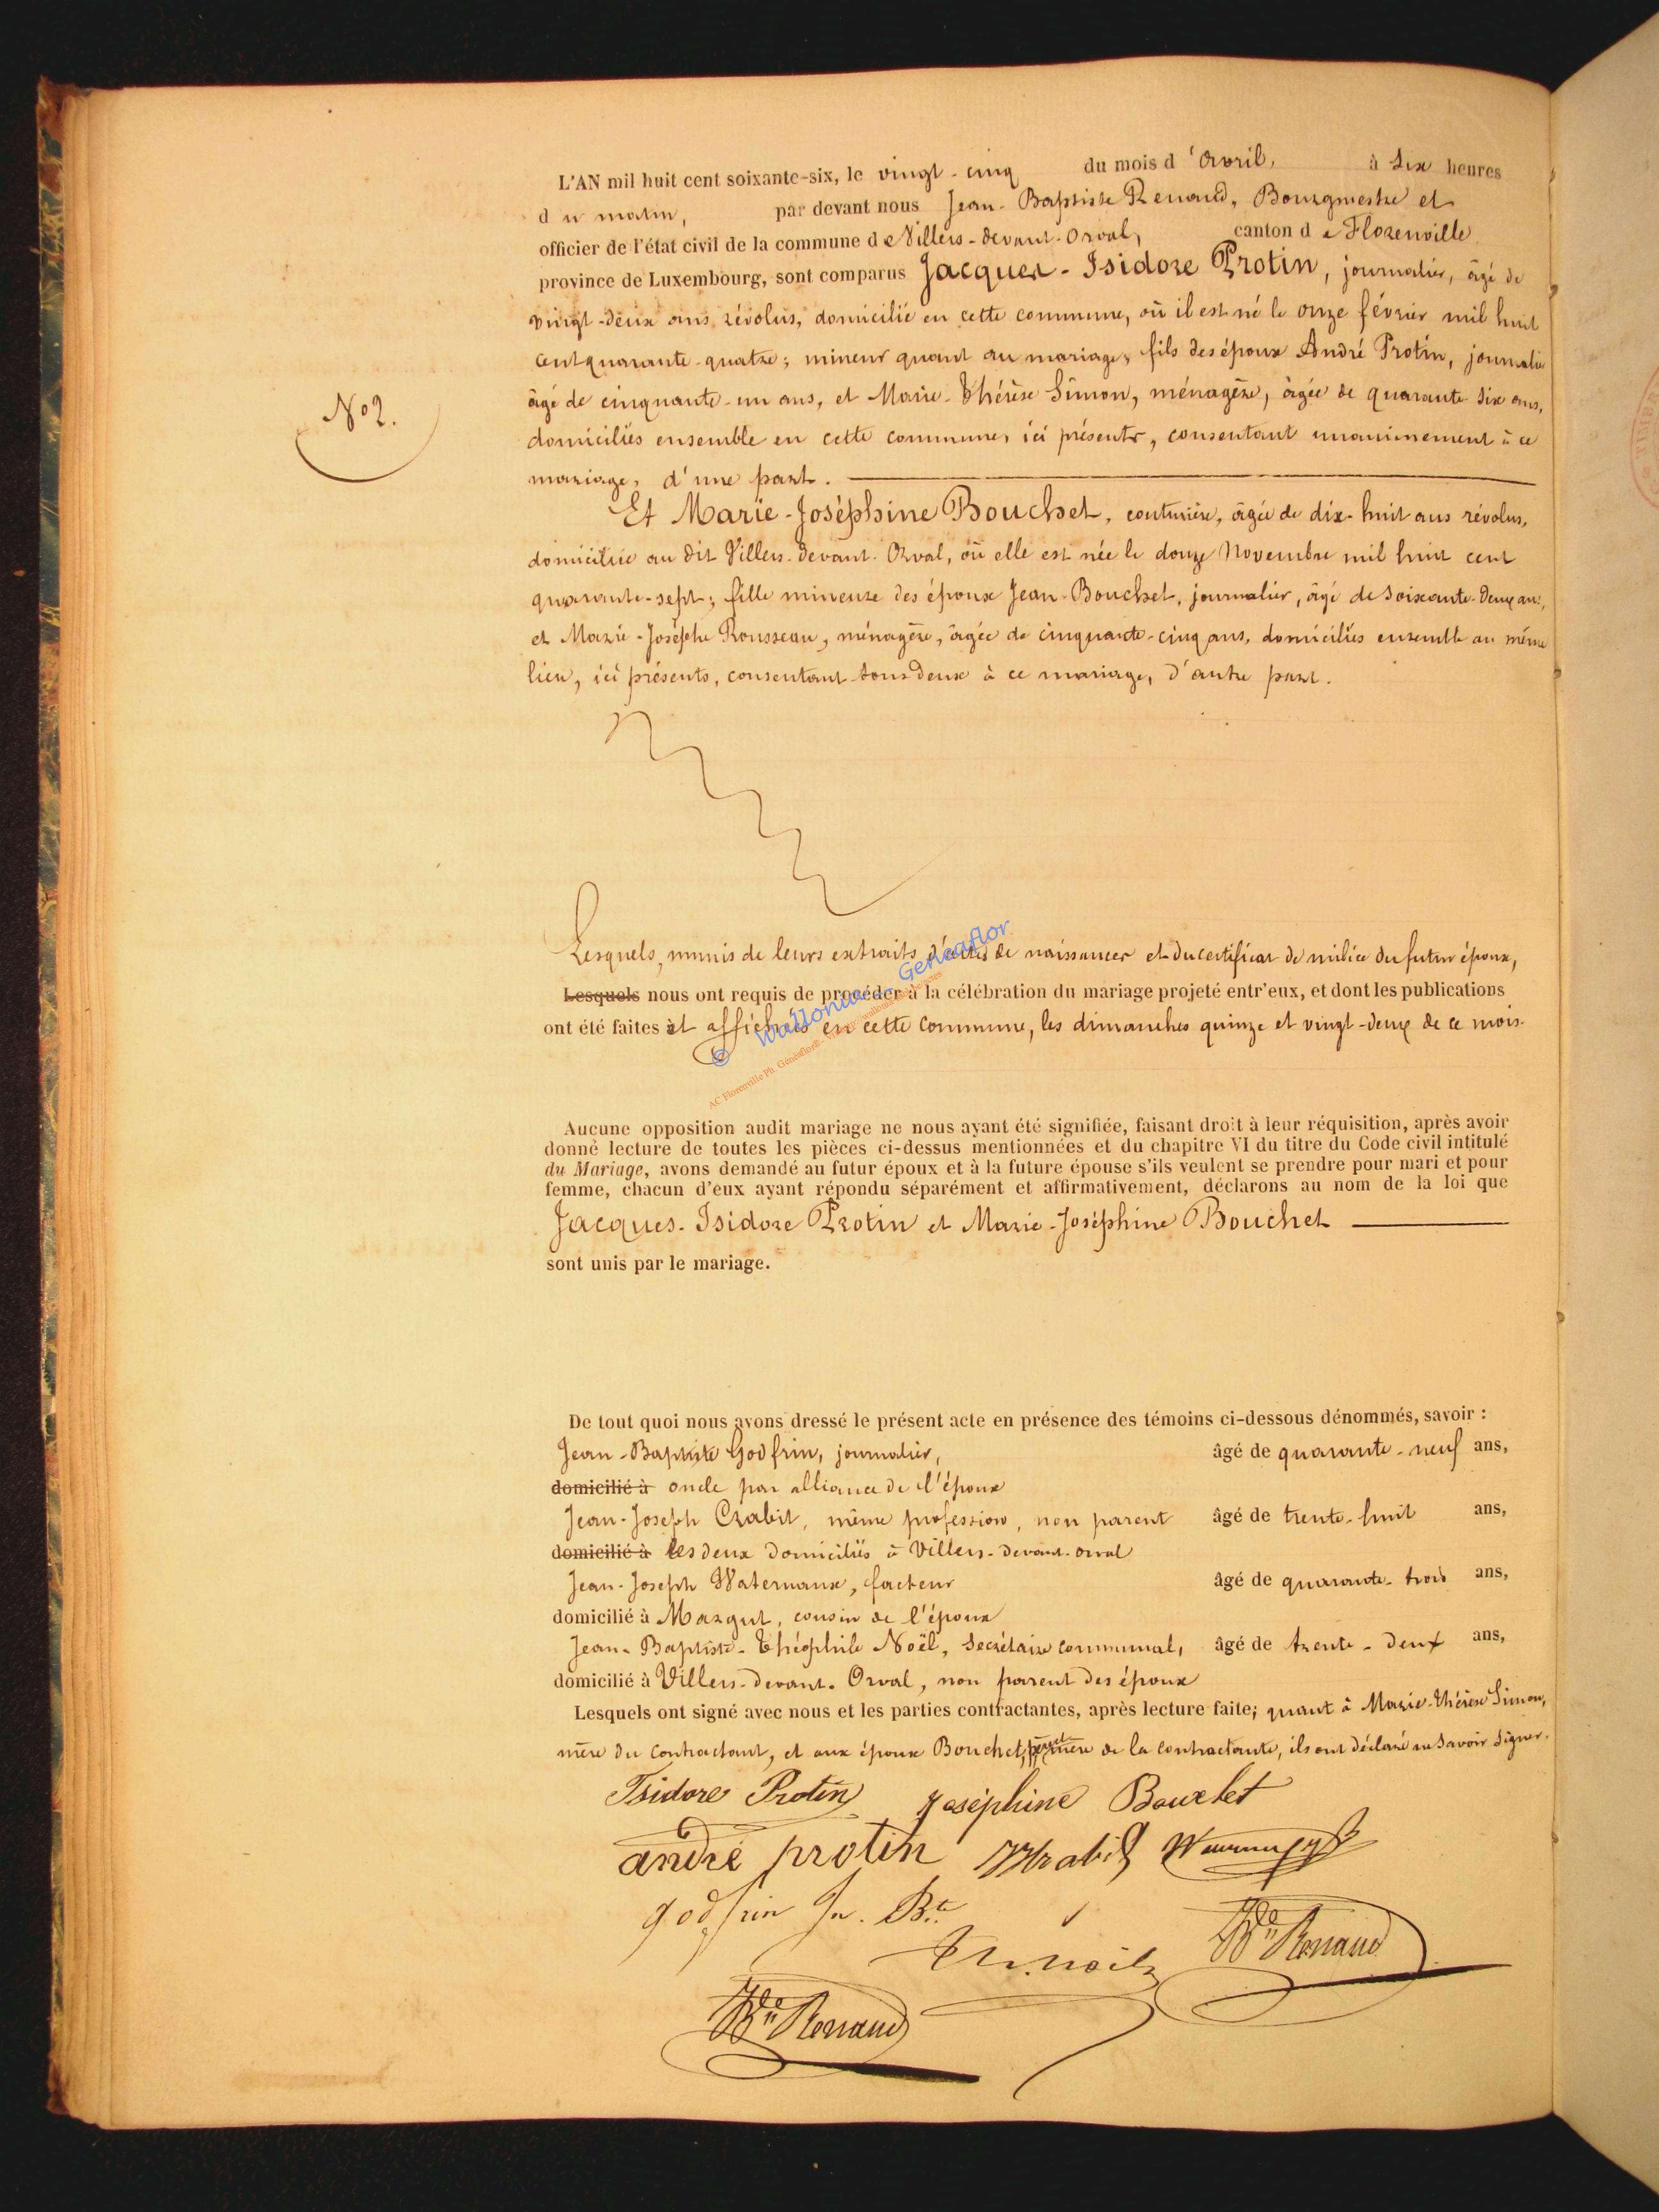 L'AN mil huit cent soixante-six, le vingt-cinq du mois d'Avril, à six heures
du matin, par devant nous Jean-Baptiste Renaud, Bourgmestre et
officier de l'état civil de la commune de Villers-devant-Orval, canton de Florenville
province de Luxembourg, sont comparus Jacques-Isidore Protin, journalier, âgé de
vingt-deux ans révolus, domicilié en cette commune, où il est né le onze février mil huit
cent quarante-quatre; mineur quant au mariage, fils des époux André Protin, journalier
âgé de cinquante-un ans, et Marie-Thérèse Simon, ménagère, âgée de quarante six ans,
N° 2.
domiciliés ensemble en cette commune, ici présents, consentant unanimement à ce
mariage, d'une part.
Et Marie-Joséphine Bouchet, couturière, âgée de dix-huit ans révolus,
domiciliée au dit Villers-devant-Orval, où elle est née le douze Novembre mil huit cent
quarante-sept; fille mineure des époux Jean Bouchet, journalier, âgé de soixante-deux ans,
et Marie-Josèphe Rousseau, ménagère, âgée de cinquante-cinq ans, domiciliés ensemble au même
lieu, ici présents, consentant tous deux à ce mariage, d'autre part.
Lesquels, munis de leurs extraits d'actes de naissances et du certificat de milice du futur époux,
Lesquels nous ont requis de procéder à la célébration du mariage projeté entr'eux, et dont les publications
ont été faites et affichées en cette commune, les dimanches quinze et vingt-deux de ce mois.
© Wallonie - Geneaflor
AC Florenville Ph. Généaflor
Aucune opposition audit mariage ne nous ayant été signifiée, faisant droit à leur réquisition, après avoir
donné lecture de toutes les pièces ci-dessus mentionnées et du chapitre VI du titre du Code civil intitulé
du Mariage, avons demandé au futur époux et à la future épouse s'ils veulent se prendre pour mari et pour
femme, chacun d'eux ayant répondu séparément et affirmativement, déclarons au nom de la loi que
Jacques-Isidore Protin et Marie-Joséphine Bouchet
sont unis par le mariage.
De tout quoi nous avons dressé le présent acte en présence des témoins ci-dessous dénommés, savoir :
Jean-Baptiste Godfrin, journalier, âgé de quarante-neuf ans,
domicilié à oncle par alliance de l'époux
Jean-Joseph Crabit, même profession, non parent âgé de trente-huit ans,
domicilié à les deux domiciliés à Villers-devant-Orval
Jean-Joseph Waternaux, facteur âgé de quarante-trois ans,
domicilié à Margut, cousin de l'époux
Jean-Baptiste-Théophile Noël, secrétaire communal, âgé de trente-deux ans,
domicilié à Villers-devant-Orval, non parent des époux
Lesquels ont signé avec nous et les parties contractantes, après lecture faite; quant à Marie-Thérèse Simon,
mère du contractant, et aux époux Bouchet, père et mère de la contractante, ils ont déclaré ne savoir signer.
Isidore Protin Joséphine Bouchet
andré protin JJ Crabit
godfrin Jn. Bte
Th. Noël Bte Renaud
Bte Renaud